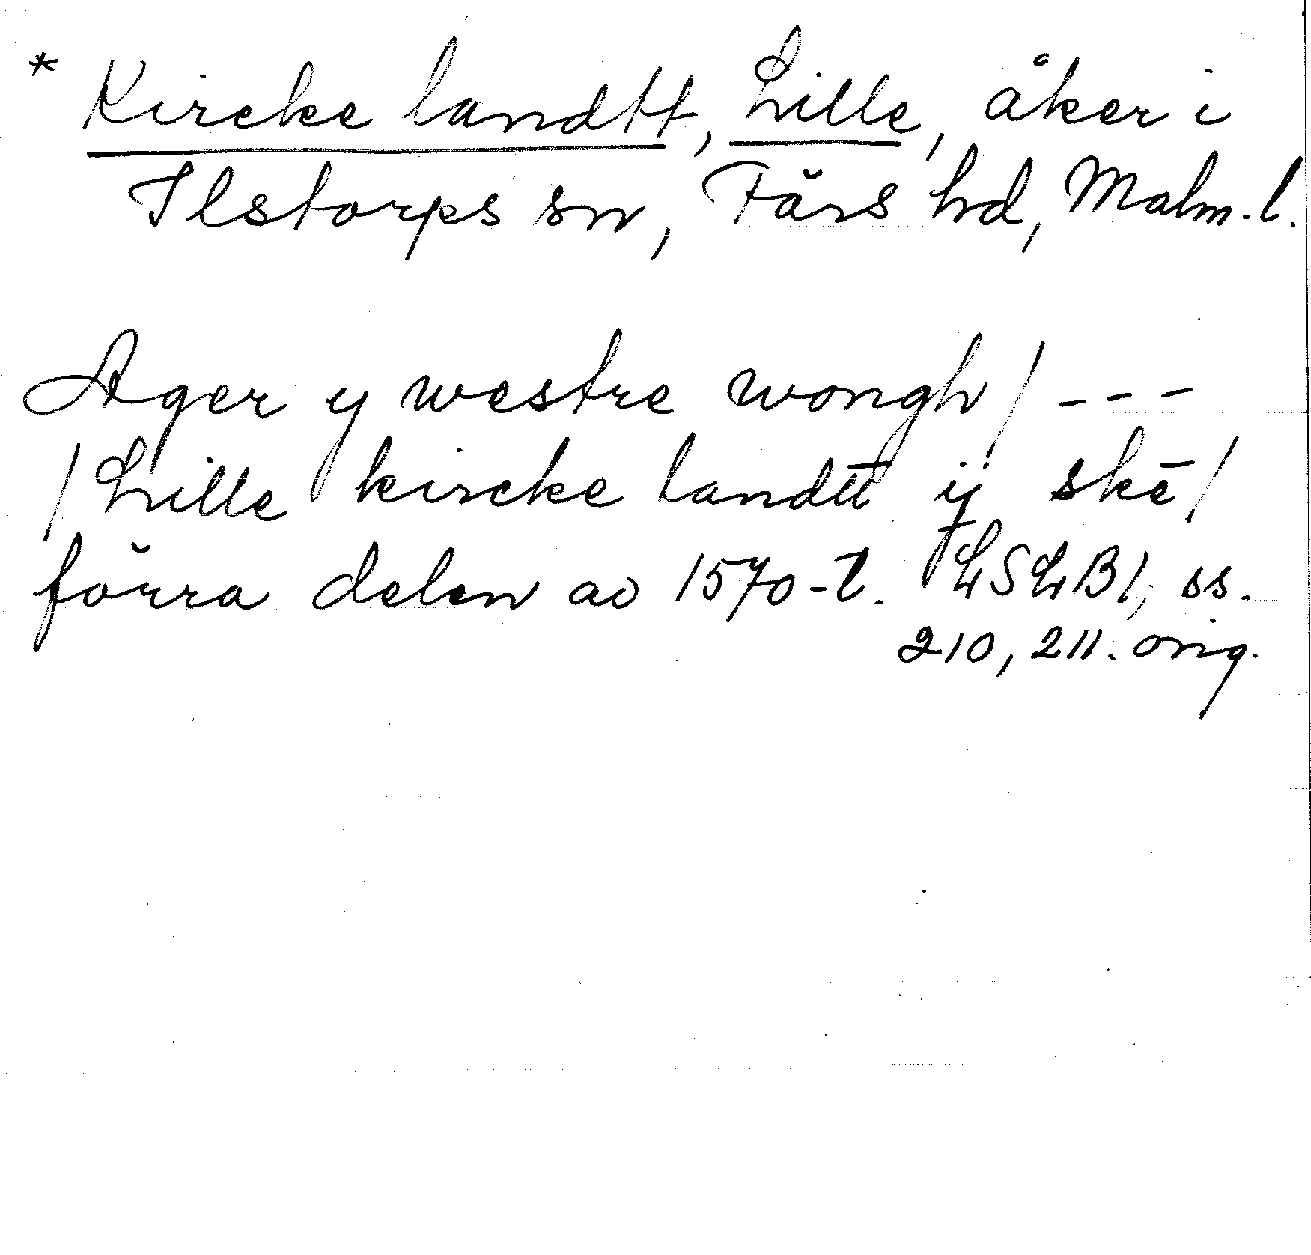 * Kircke landtt, Lille, åker i
Ilstorps sn, Färs hd, Malm. l.
Ager y westre wongh / - - -
/ Lille kircke landtt ij skē /
förra delen av 1570-t. LSLB1, ss.
210, 211. orig.